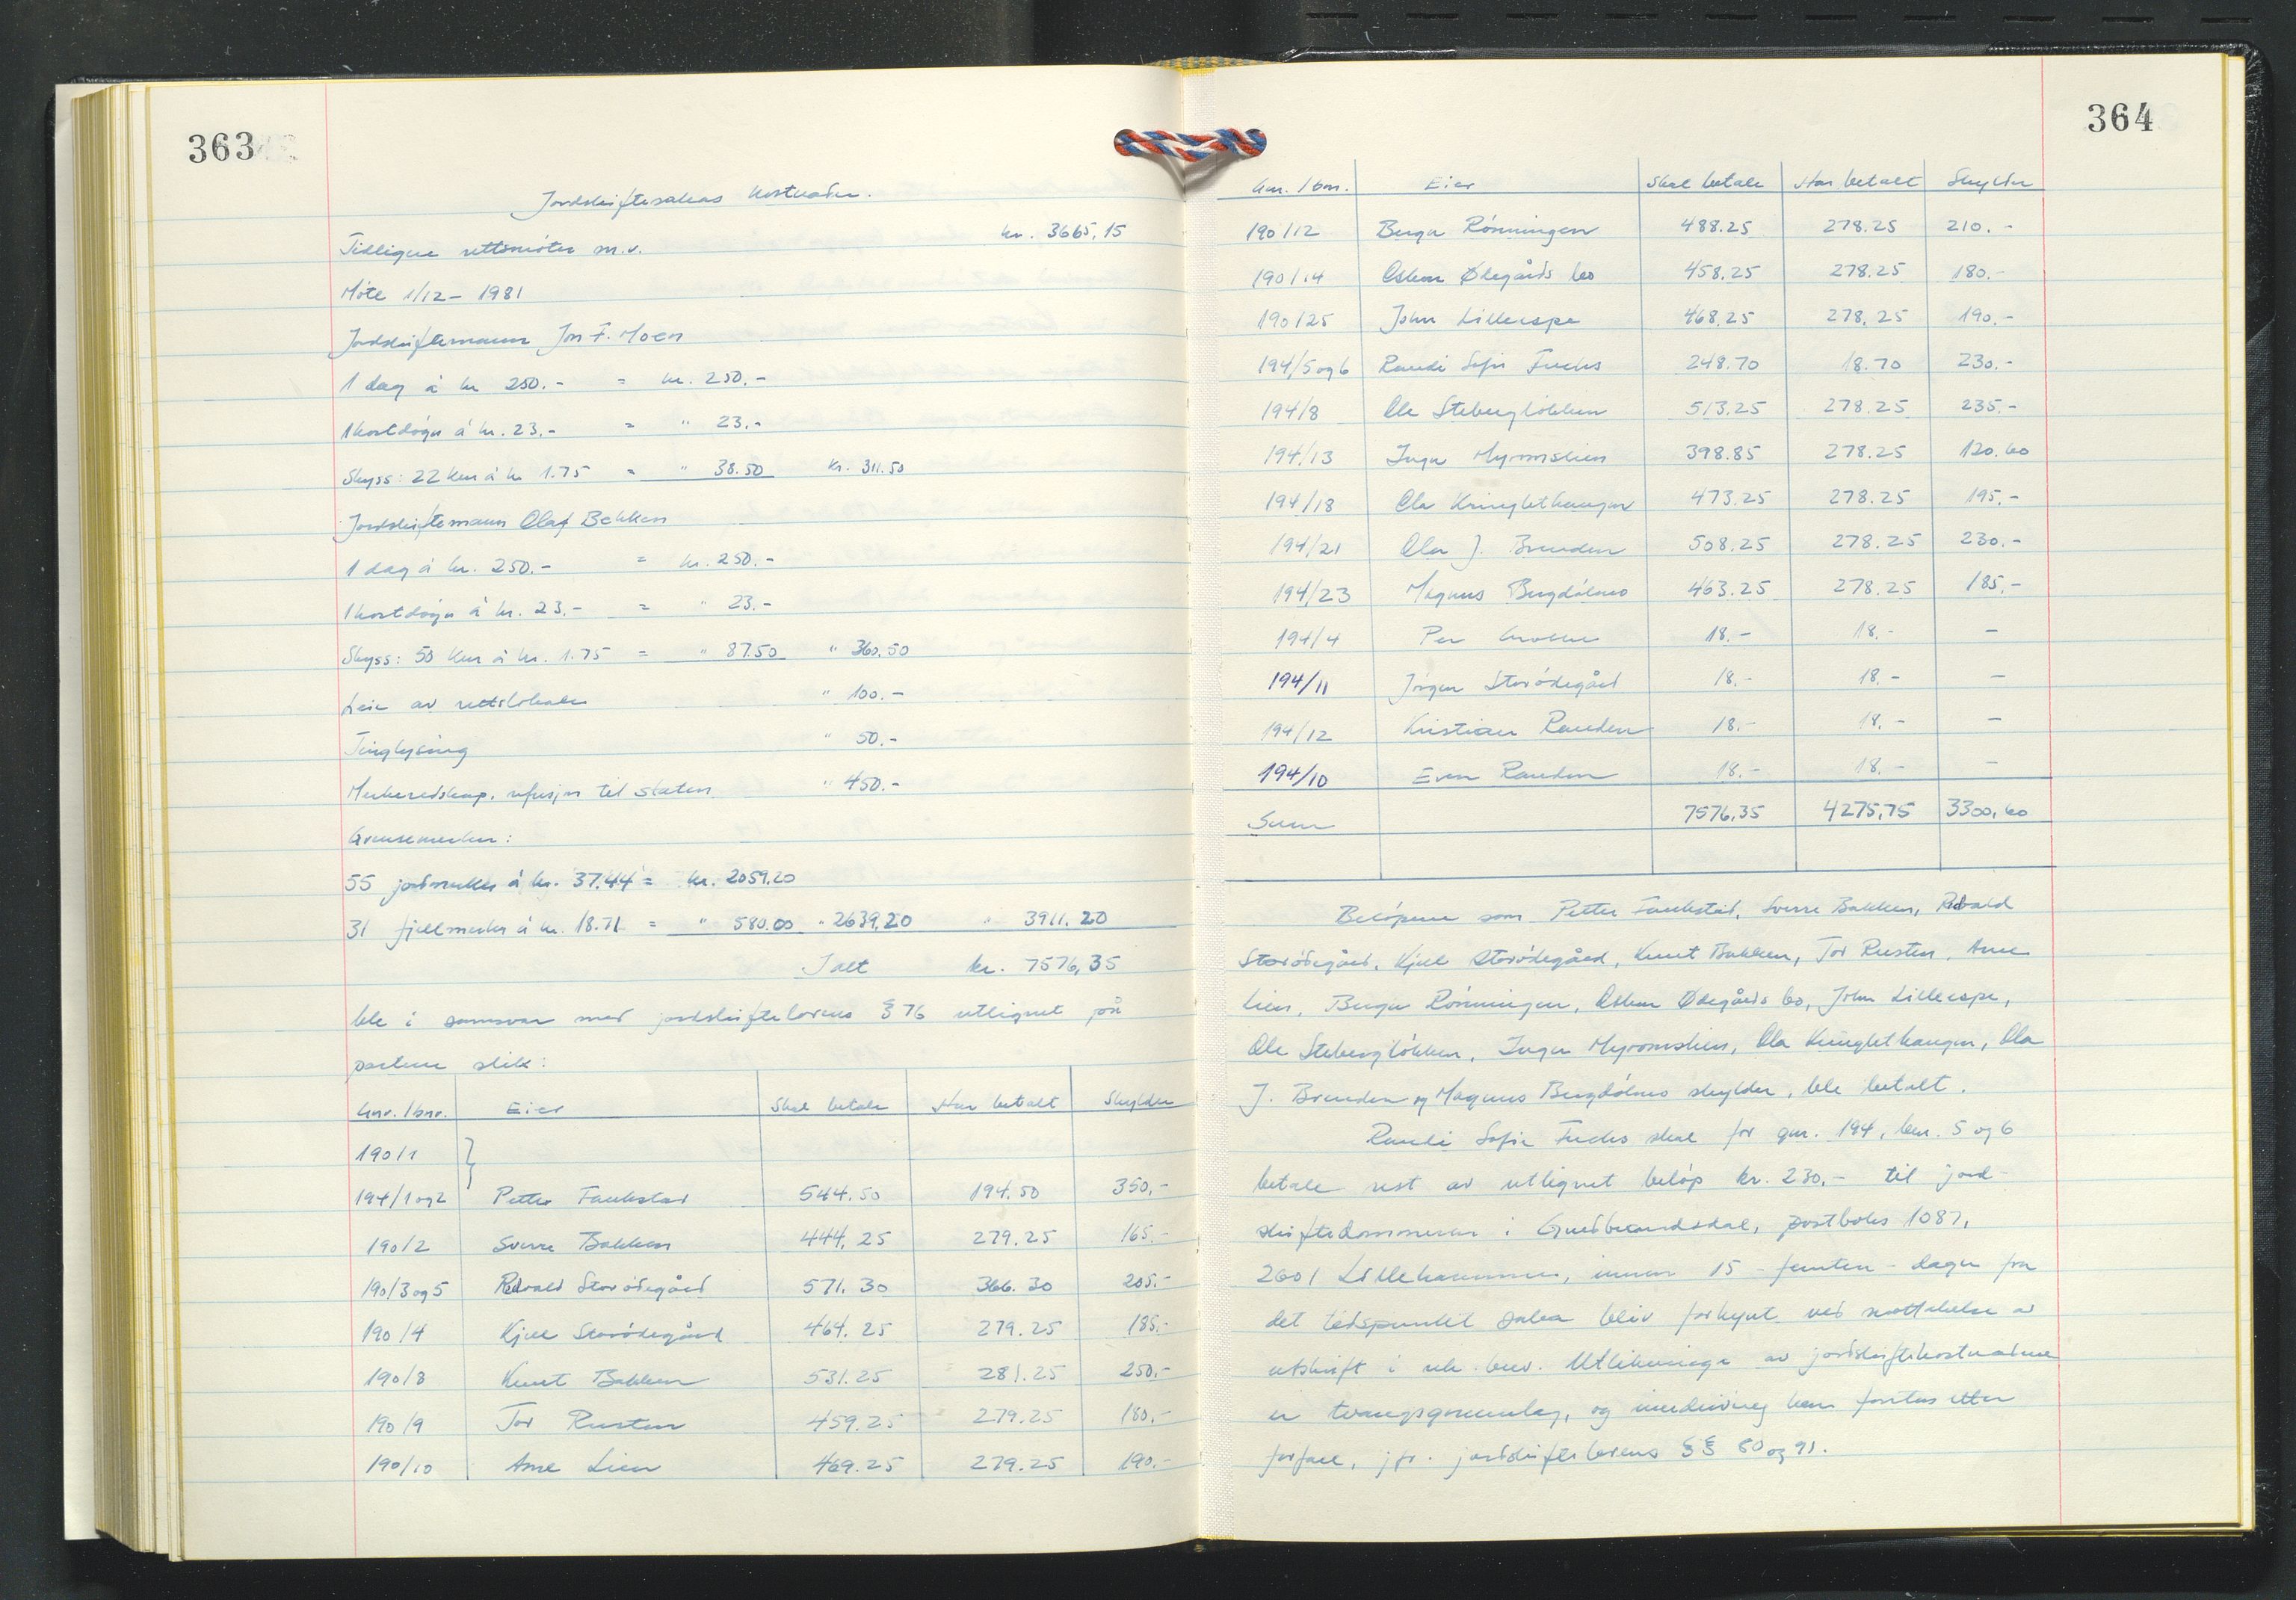 363
Jordskiftesakens kostnader.
Tidligere rettsmöter m.v. kr. 3665,15
Möte 1/12 - 1981
Jordskiftemann Jon F. Moen
1 dag á kr 250.- = kr. 250.-
1 kostdögn á kr. 23.- = " 23.-
Skyss: 22 km á kr 1.75 = " 38.50 kr. 311.50
Jordskiftemann Olaf Bekken
1 dag á kr. 250.- = kr. 250.-
1 kostdögn á kr. 23.- = " 23.-
Skyss: 50 km á kr. 1.75 = " 87.50 " 360.50
Leie av rettslokale " 100.-
Tinglysing " 50.-
Merkeredskap, refusjon til staten " 450.-
Grensemerker:
55 jordmerker á kr. 37.44 = kr. 2059.20
31 fjellmerker á kr. 18.71 = " 580.00 " 2639,20 " 3911.20
I alt kr. 7576,35
ble i samsvar med jordskiftelovens § 76 utlignet på
partene slik:
Gnr./bnr. Eier Skal betale Har betalt Skylder
190/1 }
194/1 og 2 Petter Faukstad 544.50 194.50 350.-
190/2 Sverre Bakken 444.25 279.25 165.-
190/3 og 5 Redvald Storödegård 571.30 366.30 205.-
190/4 Kjell Storödegård 464.25 279.25 185.-
190/8 Knut Bakken 531.25 281.25 250.-
190/9 Tor Rusten 459.25 279.25 180.-
190/10 Arne Lien 469.25 279.25 190.-
364
Gnr./bnr. Eier Skal betale Har betalt Skylder
190/12 Berger Rönningen 488.25 278.25 210.-
190/14 Oskar Ødegårds bo 458.25 278.25 180.-
190/25 John Lilleespe 468.25 278.25 190.-
194/5 og 6 Randi Sofie Fuchs 248.70 18.70 230.-
194/8 Ole Stebergløkken 513.25 278.25 235.-
194/13 Inger Myromslien 398.85 278.25 120.60
194/18 Ola Kringlethaugen 473.25 278.25 195.-
194/21 Ola J. Brenden 508.25 278.25 230.-
194/23 Magnus Bergdölmo 463.25 278.25 185.-
194/4 Per 18.- 18.- -
194/11 Jörgen Storödegård 18.- 18.- -
194/12 Kristian Randen 18.- 18.- -
194/10 Even Randen 18.- 18.- -
Sum 7576,35 4275,75 3300,60
Belöpene som Petter Faukstad, Sverre Bakken, Redvald
Storödegård, Kjell Storödegård, Knut Bakken, Tor Rusten, Arne
Lien, Berger Rönningen, Oskar Ødegårds bo, John Lilleespe,
Ole Steberglökken, Inger Myromslien, Ola Kringlethaugen, Ola
J. Brenden og Magnus Bergdölmo skylder, ble betalt.
Randi Sofie Fuchs skal for gnr. 194, bnr. 5 og 6
betale rest av utlignet belöp kr. 230.- til jord-
skiftedommeren i Gudbrandsdal, postboks 1087,
2601 Lillehammer, innen 15 - femten - dager fra
det tidspunktet saka blir forkynt ved mottakelse av
utskrift i rek. brev. Utlikninga av jordskiftekostnadene
er tvangsgrunnlag, og inndriving kan foretas etter
forfall, jfr. jordskiftelovens §§ 80 og 91.